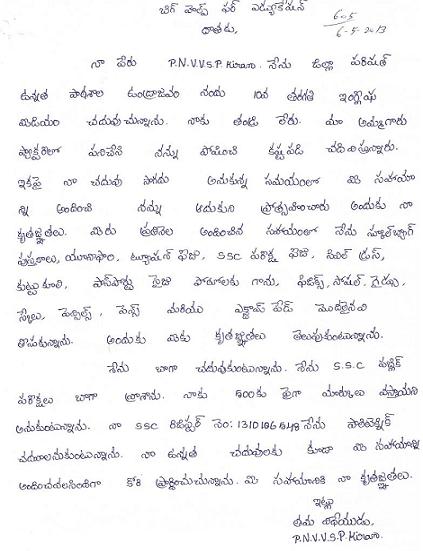 బిగ్ హెల్ప్ ఫర్ ఎడ్యుకేషన్
6-5-2013
దాతకు,
నా పేరు P.N.V.V.S.P.Kiran. నేను జిల్లా పరిషత్
ఉన్నత పాఠశాల ఉండ్రాజవరం నందు 10వ తరగతి ఇంగ్లీషు
మీడియం చదువుచున్నాను. నాకు తండ్రి లేరు. మా అమ్మగారు
ఫ్యాక్టరీలో పనిచేసి నన్ను పోషించి కష్టపడి చదివిస్తున్నారు.
ఇకపై నా చదువు సాగదు అనుకున్న సమయంలో మీ సహాయా
న్ని అందించి నన్ను ఆదుకుని ప్రోత్సహించారు అందుకు నా
కృతజ్ఞతలు. మీరు అందించిన సహాయంలో నేను స్కూల్‌బ్యాగ్
పుస్తకాలు, యూనిఫారం, ట్యూషన్ ఫీజు, SSC పరీక్ష ఫీజు, సివిల్ డ్రస్,
కుట్టుకూలి, పాస్‌పోర్టు సైజు ఫోటోలకు గాను, ఫిజిక్స్, సోషల్, గైడ్సు,
స్కేలు, పెన్సిల్స్, పెన్స్ మరియు ఎగ్జామ్ పేడ్ మొదలైనవి
తీసుకున్నాను. అందుకు మీకు కృతజ్ఞతలు తెలుపుకుంటున్నాను.
నేను బాగా చదువుకుంటున్నాను. నేను S.S.C పబ్లిక్
పరీక్షలు బాగా వ్రాశాను. నాకు 500కు పైగా మార్కులు వస్తాయని
అనుకుంటున్నాను. నా SSC రిజిస్టర్ నెం: 1310186648 నేను పాలిటెక్నిక్
చదవాలనుకుంటున్నాను. నా ఉన్నత చదువులకు కూడా మీ సహాయాన్ని
అందించవలసిందిగా కోరి ప్రార్థించుచున్నాను. మీ సహాయానికి నా కృతజ్ఞతలు.
ఇట్లు
తమ విధేయుడు,
P.N.V.V.S.P.Kiran.